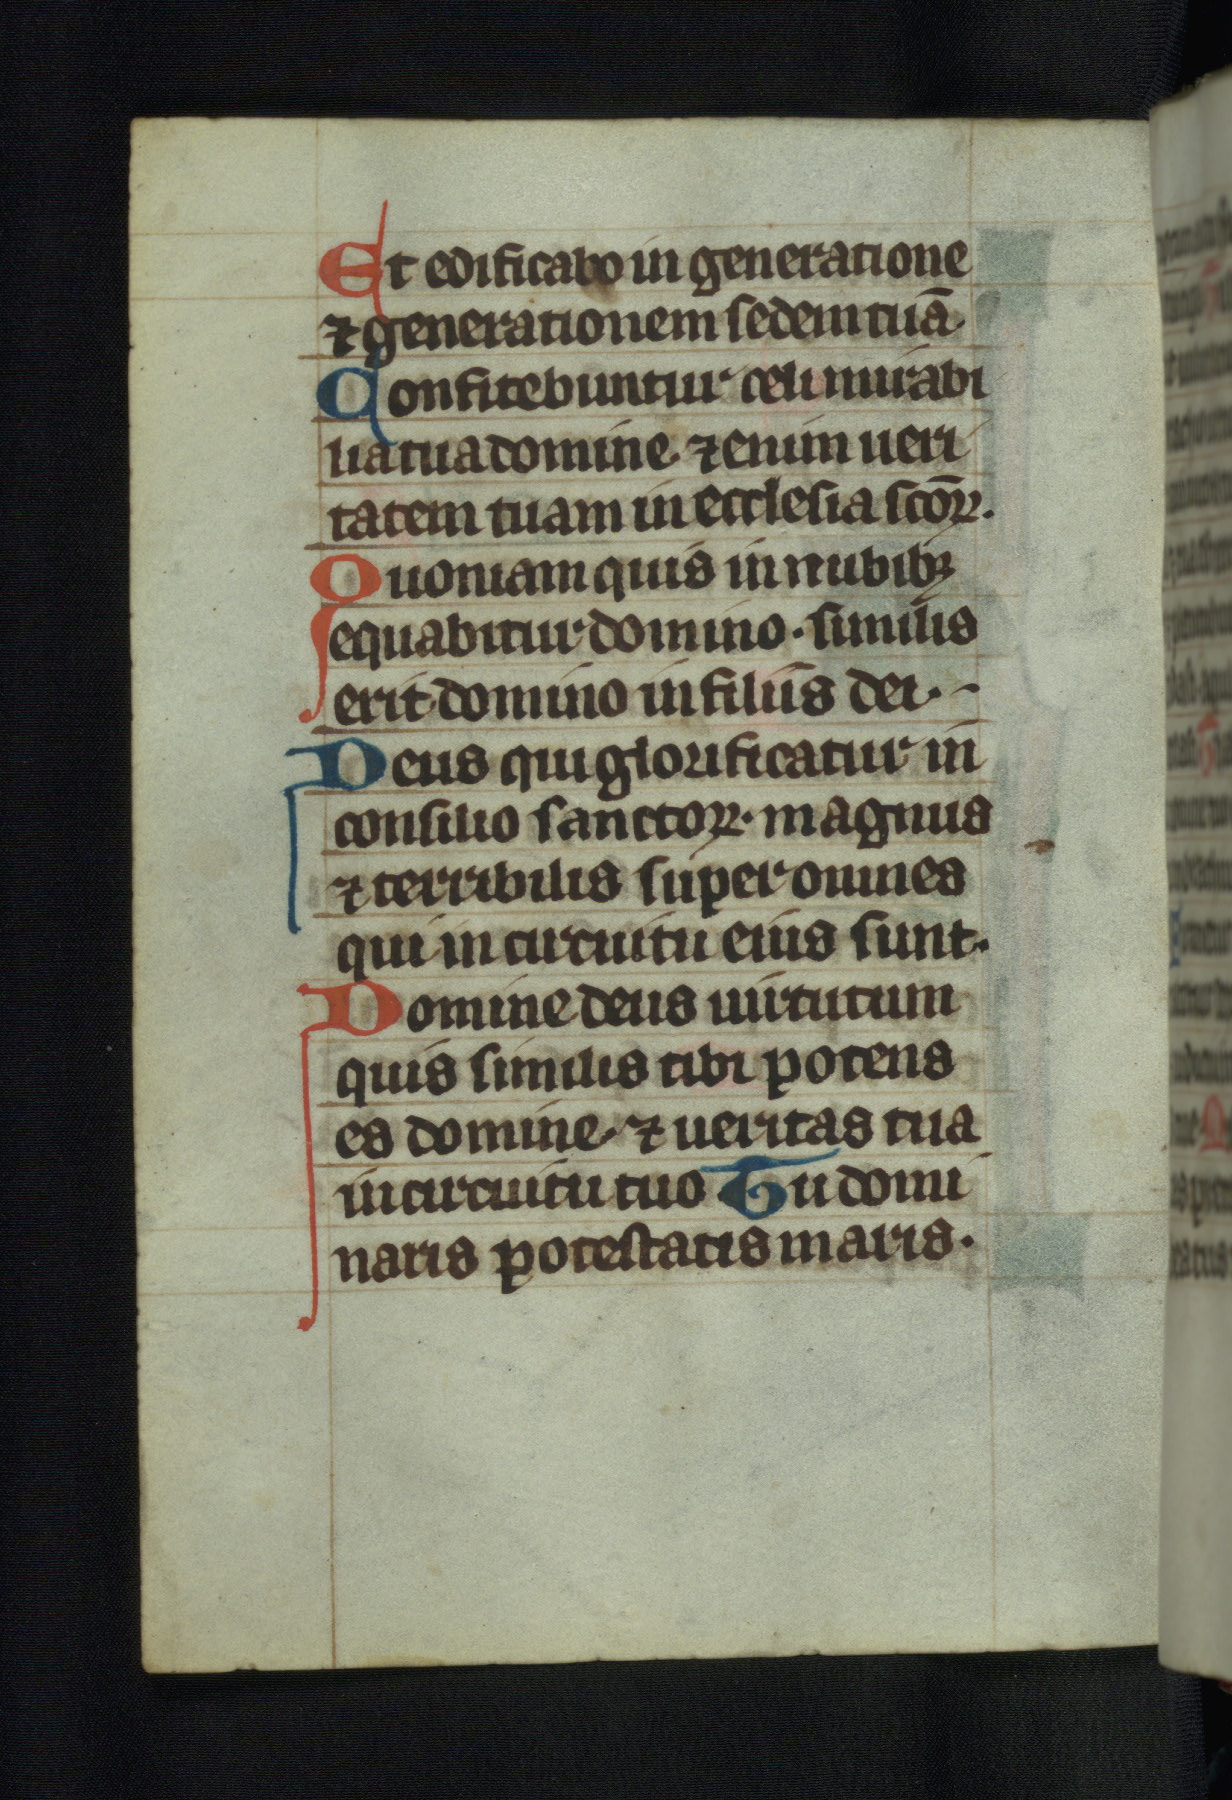 Et edificabo in generatione
⁊ generationem sedem tuā.
Confitebuntur celi mirabi
lia tua domine ⁊ enim ueri
tatem tuam in ecclesia scōꝝ.
Quoniam quis in nubibꝫ
equabitur domino · similis
erit domino in filiis dei ·-
Deus qui glorificatur in
consilio sanctoꝝ · magnus
⁊ terribilis super omnes
qui in circuitu eius sunt.
Domine deus uirtutum
quis similis tibi potens
es domine ⁊ ueritas tua
in circuitu tuo Tu domi
naris potestatis maris.